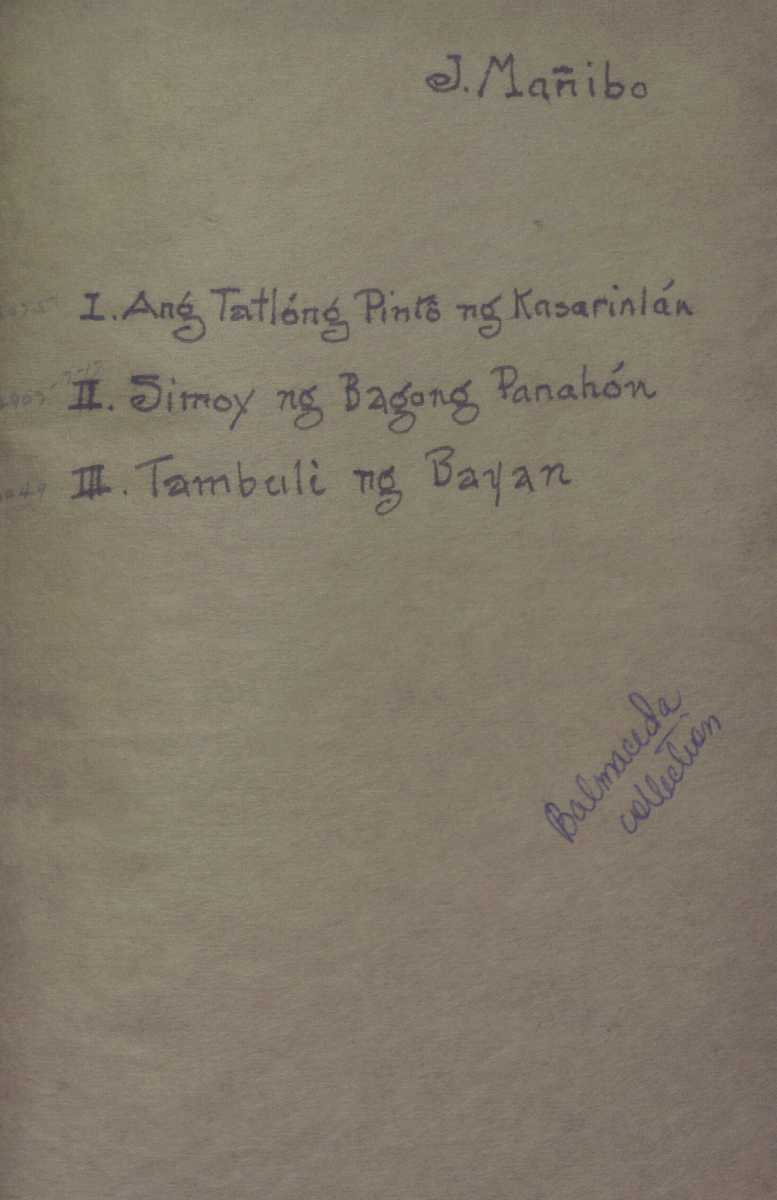 J. Mañibo
I. Ang Tatlóng Pintô ng Kasarinlán
II. Simoy ng Bagong Panahón
III. Tambuli ng Bayan
Balmaceda
collection